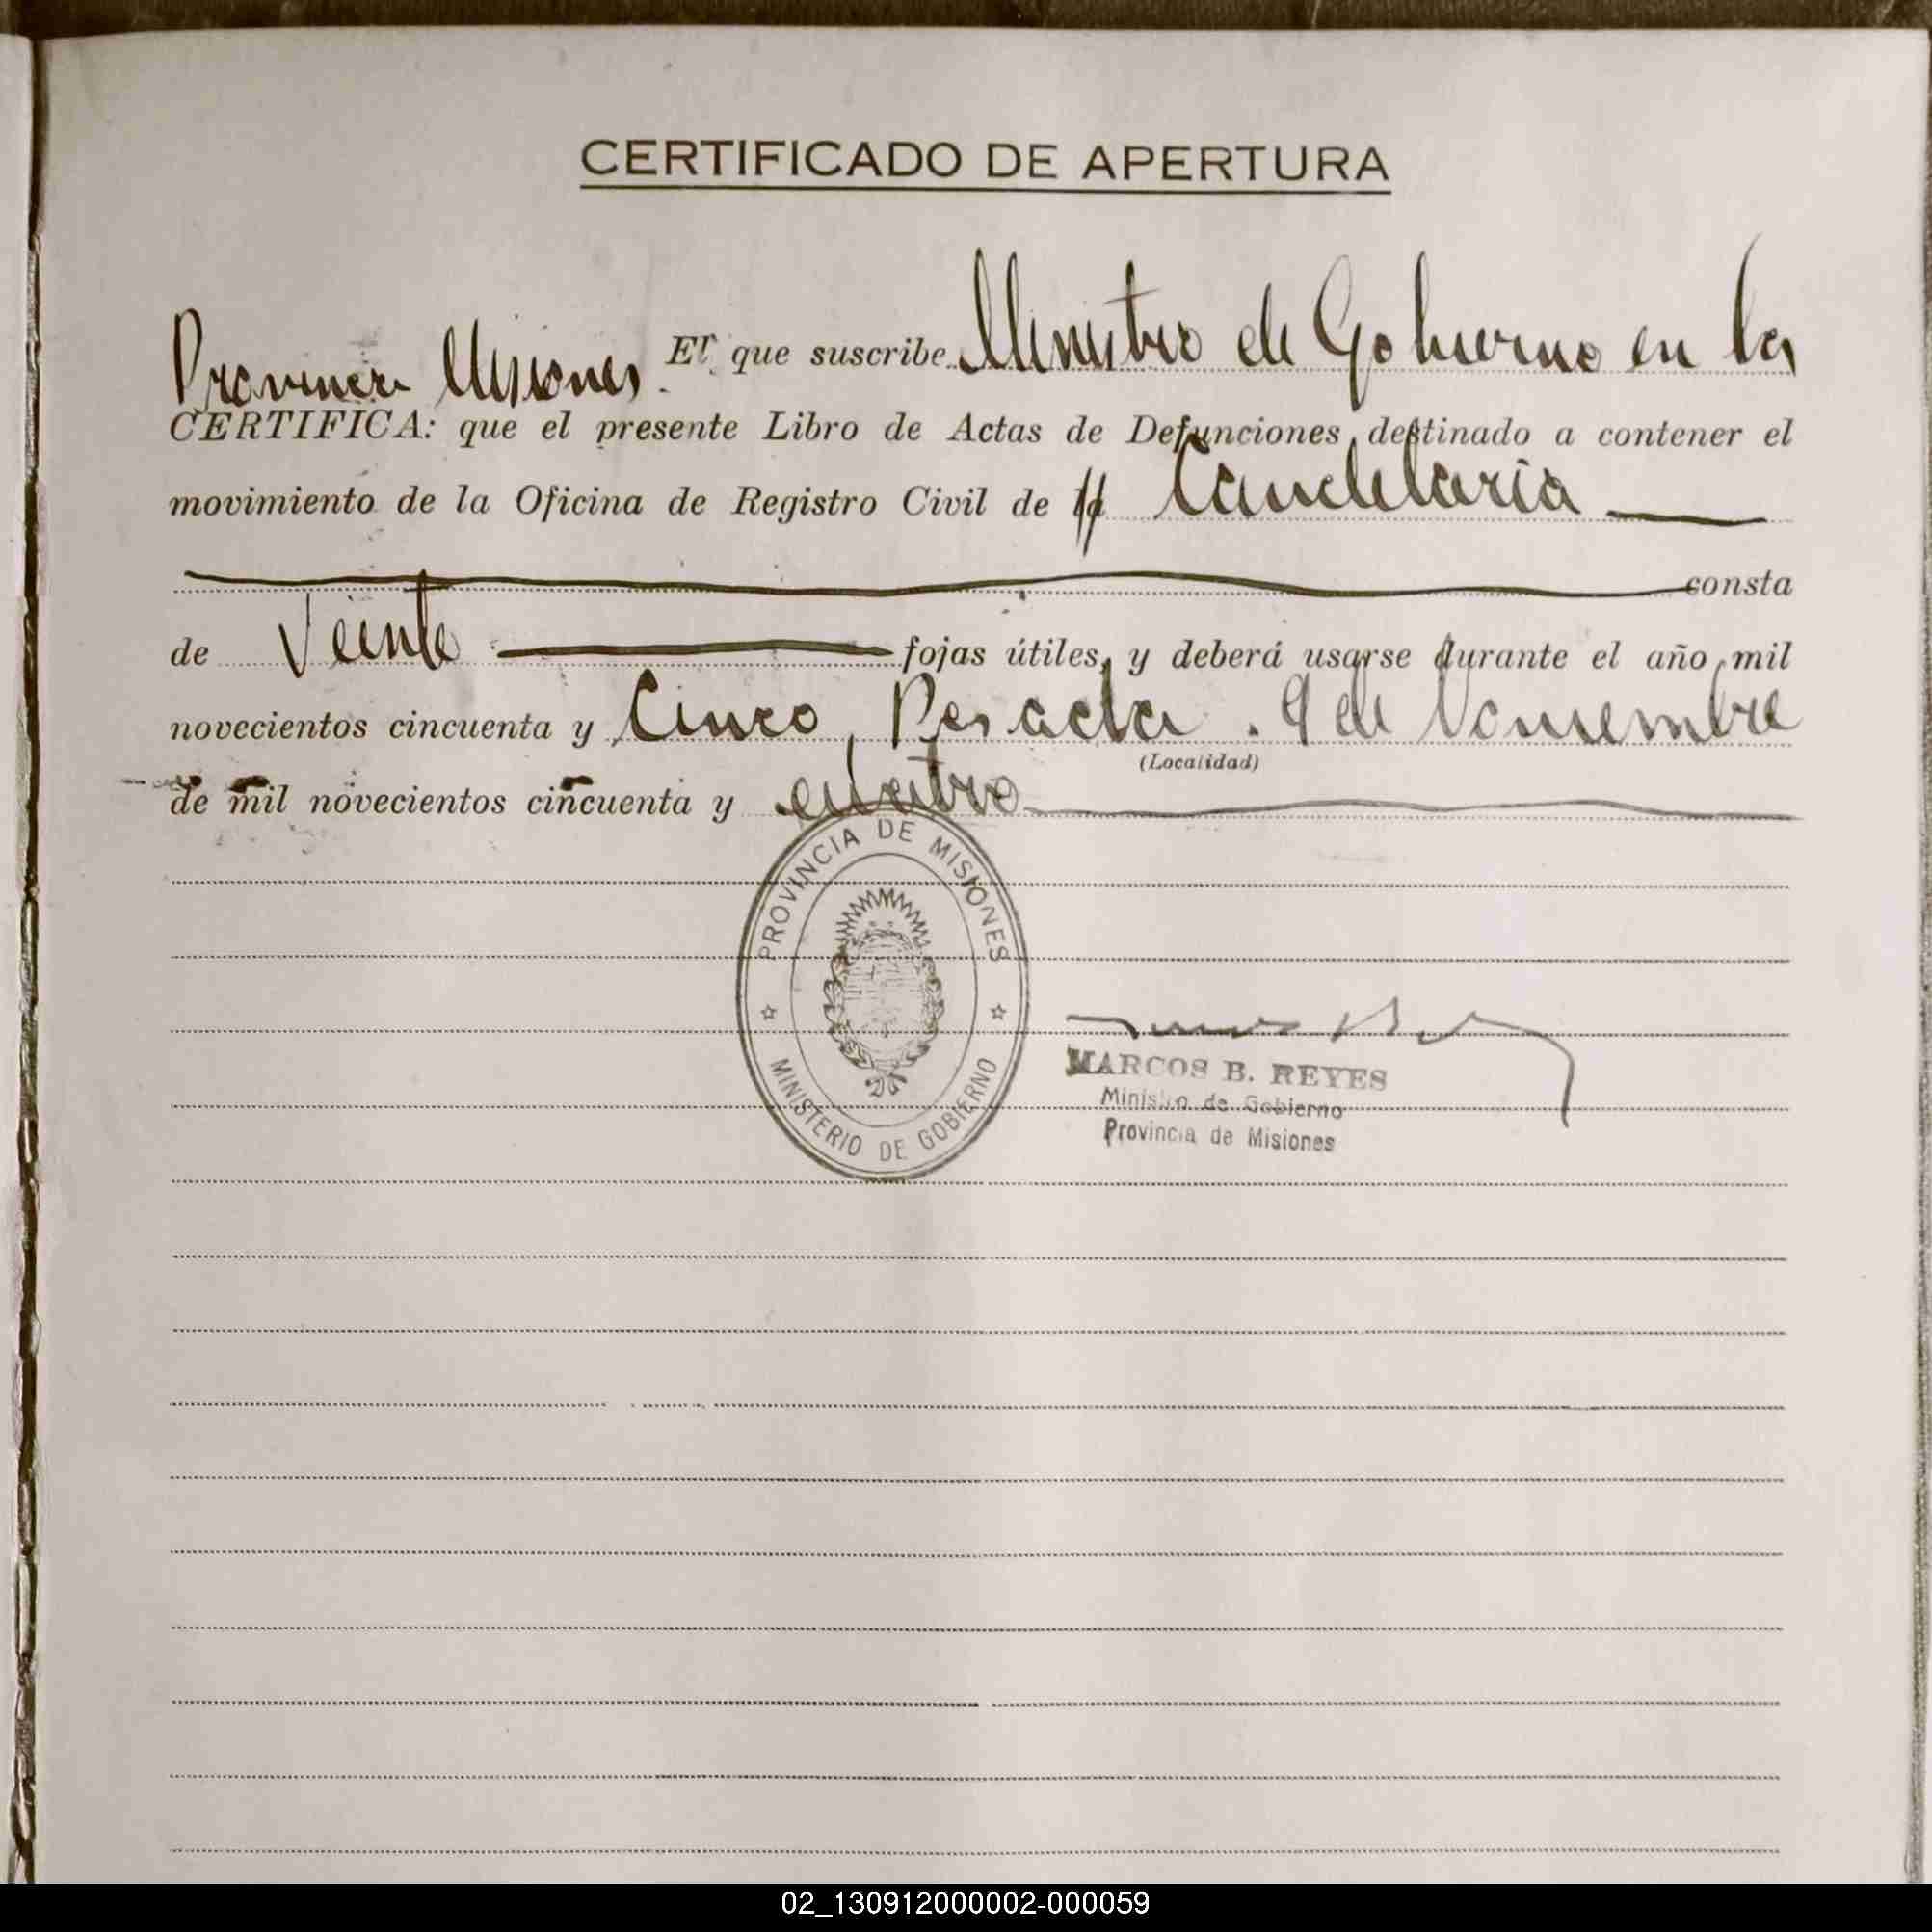 CERTIFICADO DE APERTURA
El que suscribe Ministro de Gobierno en la
Provincia Misiones.
CERTIFICA: que el presente Libro de Actas de Defunciones, destinado a contener el
movimiento de la Oficina de Registro Civil de la Candelaria
consta
de Veinte fojas útiles, y deberá usarse durante el año mil
novecientos cincuenta y Cinco, Posadas. 9 de Noviembre
(Localidad)
de mil novecientos cincuenta y cuatro
PROVINCIA DE MISIONES
MINISTERIO DE GOBIERNO
MARCOS B. REYES
Ministro de Gobierno
Provincia de Misiones
02_130912000002-000059